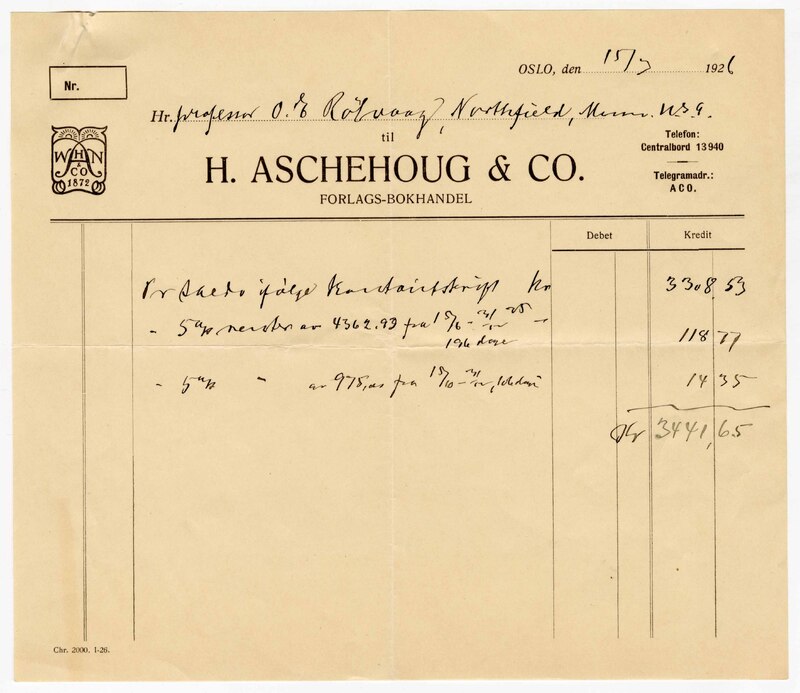 Nr.
OSLO, den 15/3 1926
Hr. professor O. E Rölvaag, Northfield, Minn. U.S.A.
til
H. ASCHEHOUG & CO.
FORLAGS-BOKHANDEL
W H & N
CO
1872
Telefon:
Centralbord 13940
Telegramadr.:
ACO.
Debet Kredit
Pr saldo ifölge Kontoutskrift Kr 3308,53
" 5% renter av 4362.93 fra 15/6 - 31/12 25 " 118 77
196 dage
- 5% " av 975,00 fra 15/10 - 31/12, 106 dage 14 35
Kr 3441,65
Chr. 2000. 1-26.